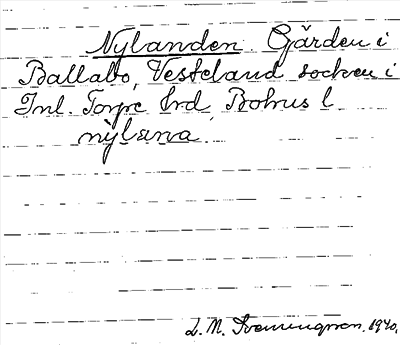 Nylanden Gården i
Ballabo, Vesteland socken i
Inl. Torpe hrd, Bohus l.
nỳlana
L. M. Svenungsson. 1940.